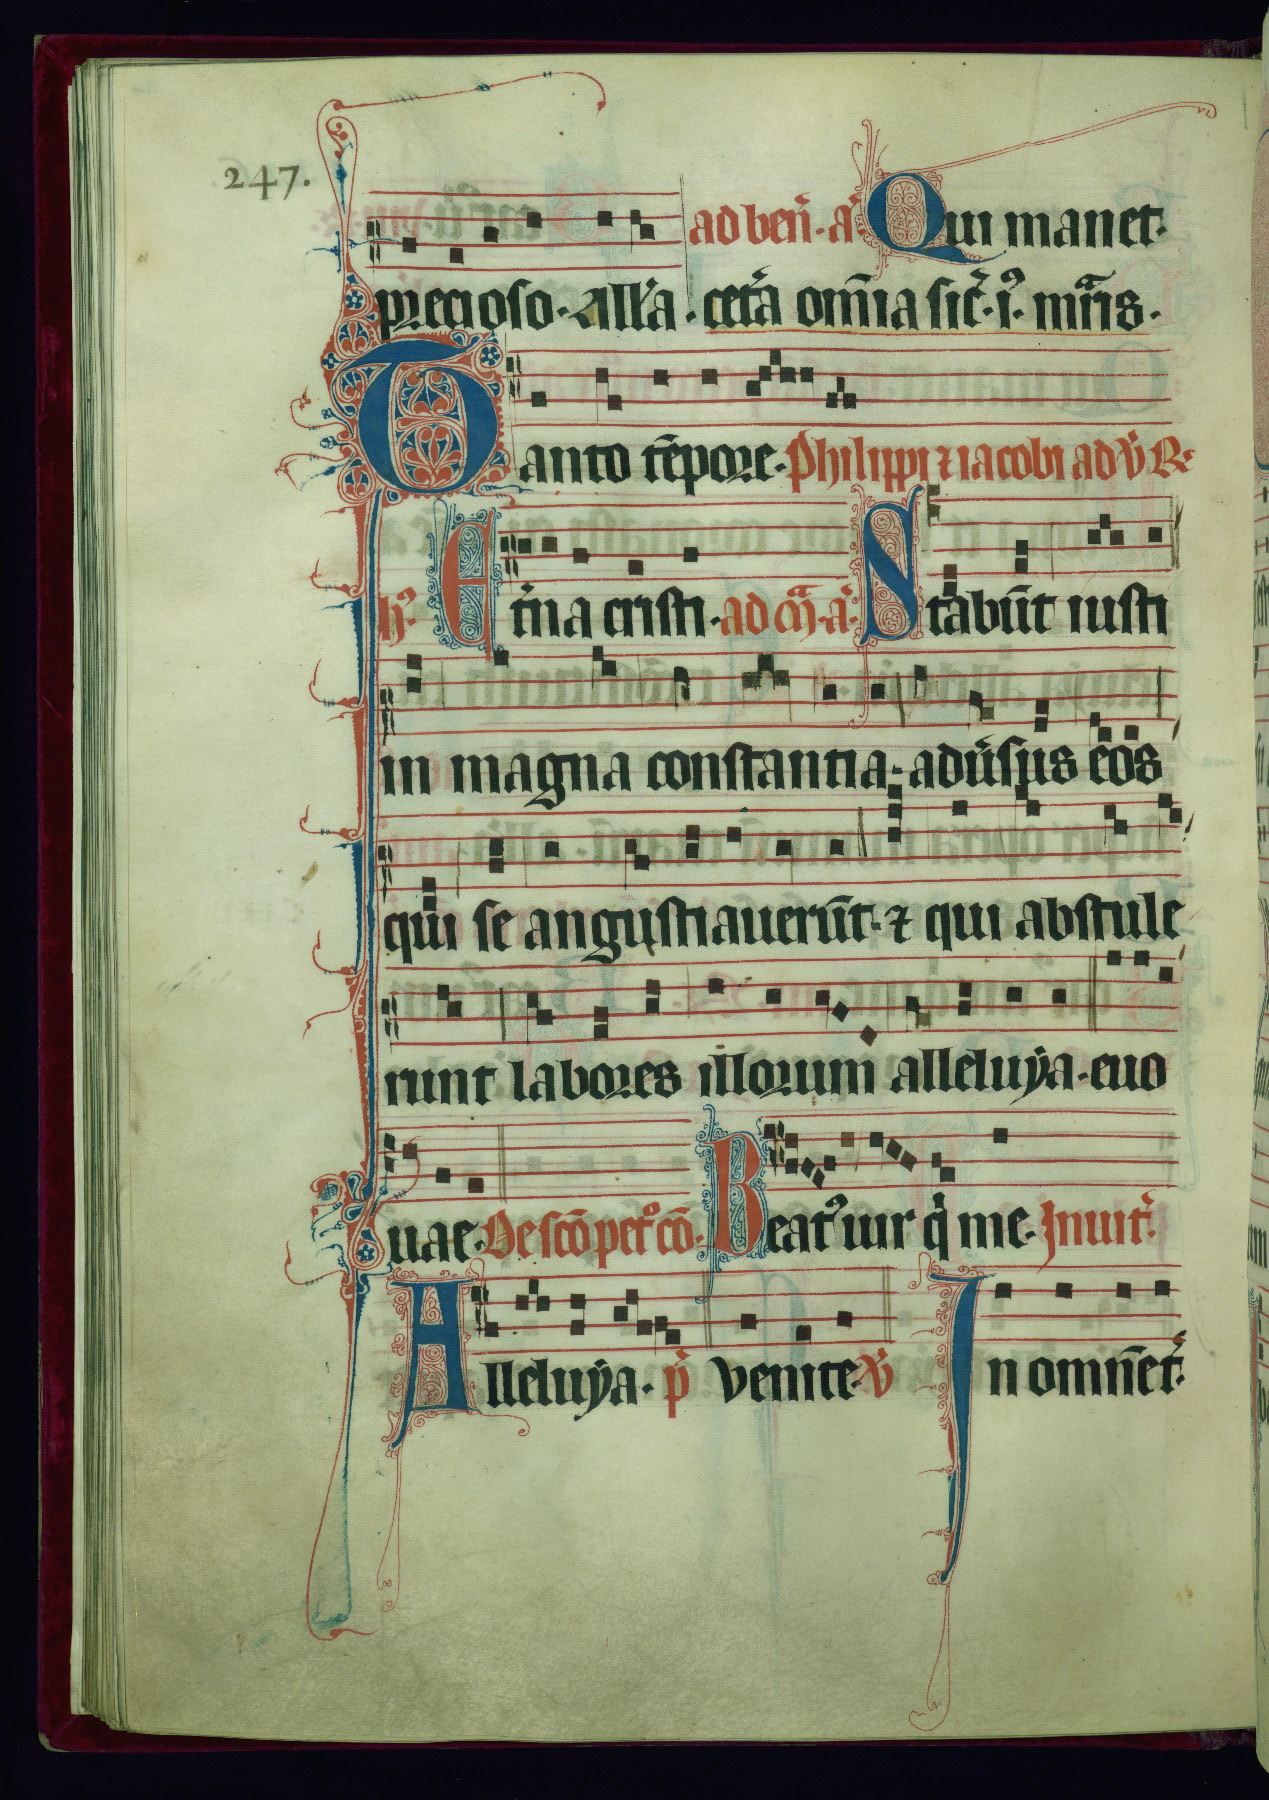 247.
ad ben̄. a̾. Qui manet.
precioso. All̾a. cet̾a om̄ia sic̾. i. mr̄is.
Tanto tēpore. Philippi ⁊ iacobi ad v̾ R.
h. Et̾na cristi. ad m̄. a̾. Stabūt iusti
in magna constantia. adu̾sus eos
qui se angustiauerūt. ⁊ qui abstule
runt labores illorum alleluẏa. euo
uae. De scō pet̊ cō. Beat᷒ uir q̾ me. Inuit̾.
Alleluẏa. p̄ Venite. v̾ In omnē t̾.